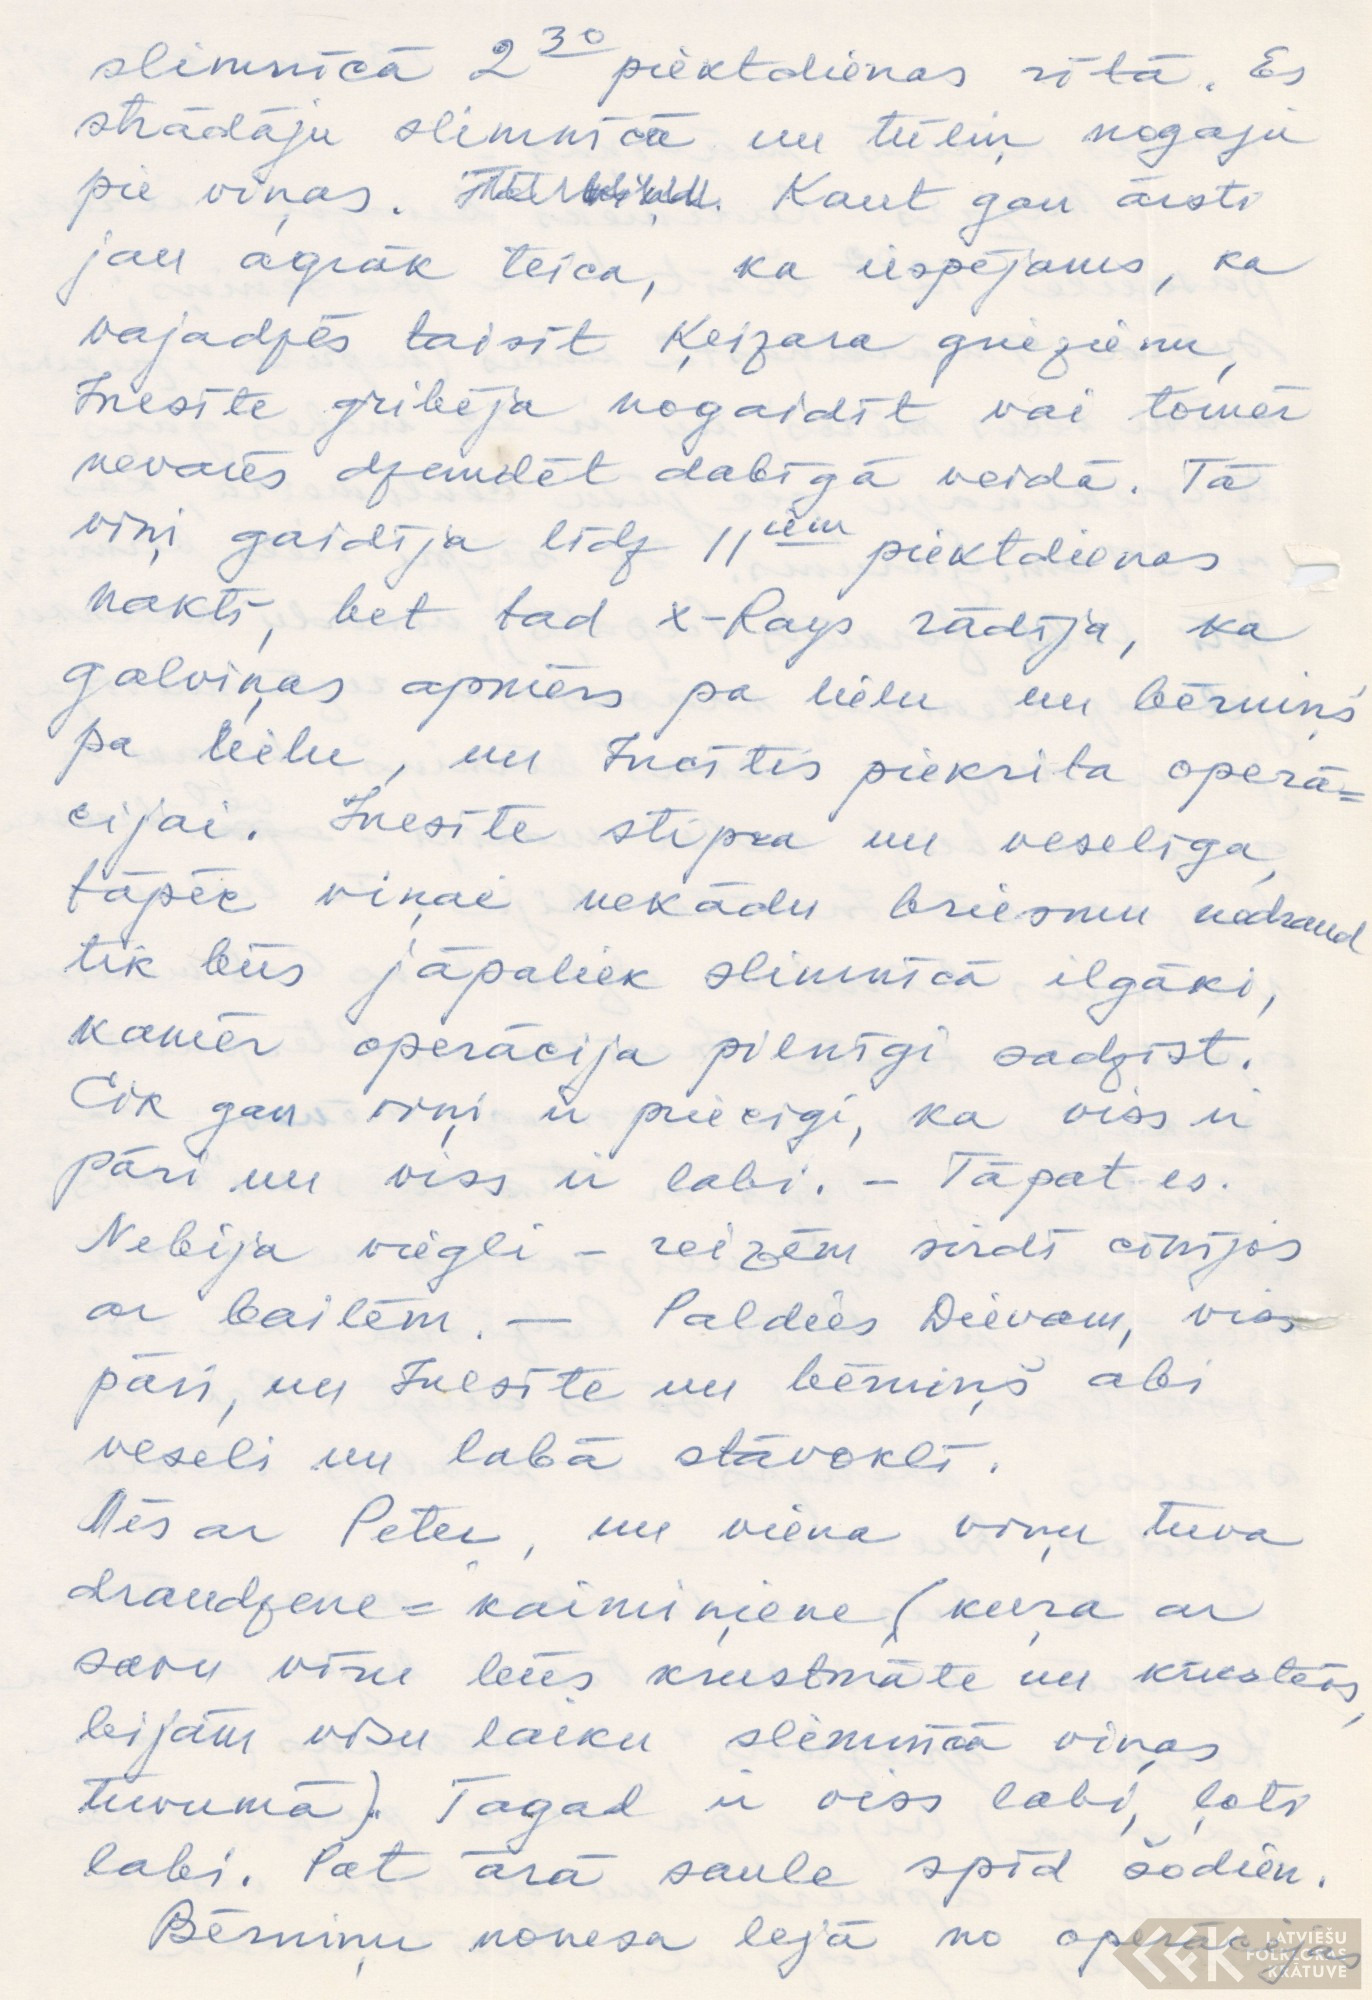 slimnīcā 2 30 piektdienas rītā. Es
strādāju slimnīcā un tūliņ nogāju
pie viņas. Kaut gan ārsti
jau agrāk teica, ka iespējams, ka
vajadzēs taisīt Ķeizara griezienu,
Inesīte gribēja nogaidīt vai tomēr
nevarēs dzemdēt dabīgā veidā. Tā
viņi gaidīja līdz 11iem piektdienas
naktī, bet tad X-Rays rādīja, ka
galviņas apmērs pa lielu un bērniņš
pa lielu, un Inesītis piekrita operā=
cijai. Inesīte stipra un veselīga,
tāpēc viņai nekādu briesmu nedraud
tik būs jāpaliek slimnīcā ilgāki,
kamēr operācija pilnīgi sadzīst.
Cik gan viņi ir priecīgi, ka viss ir
pāri un viss ir labi. – Tāpat es.
Nebija viegli – reizēm sirdī cīnījos
ar bailēm. — Paldies Dievam, viss
pāri, un Inesīte un bērniņš abi
veseli un labā stāvoklī.
Mēs ar Peter, un viena viņu tuva
draudzene = kaimiņiene (kura ar
savu vīru būs krustmāte un krusttēvs,
bijām visu laiku slimnīcā viņas
tuvumā). Tagad ir viss labi, ļoti
labi. Pat ārā saule spīd šodien.
Bērniņu nonesa lejā no operācijas
LATVIEŠU
FOLKLORAS
KRĀTUVE